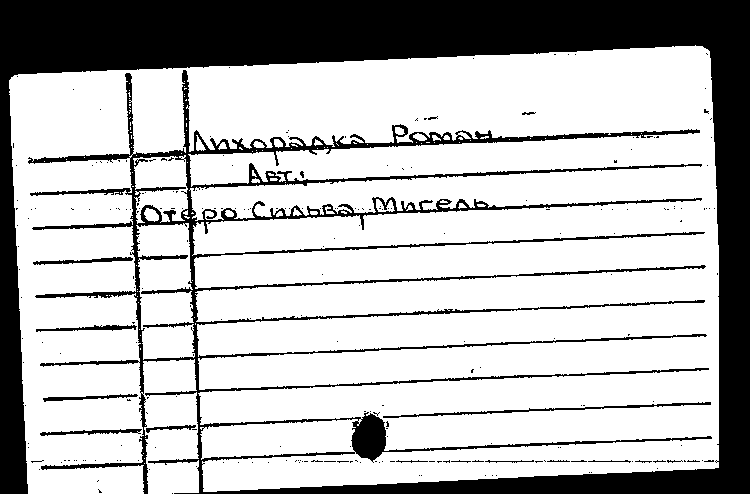 Лихорадка Роман.
Авт.:
Отеро Сильва, Мигель.